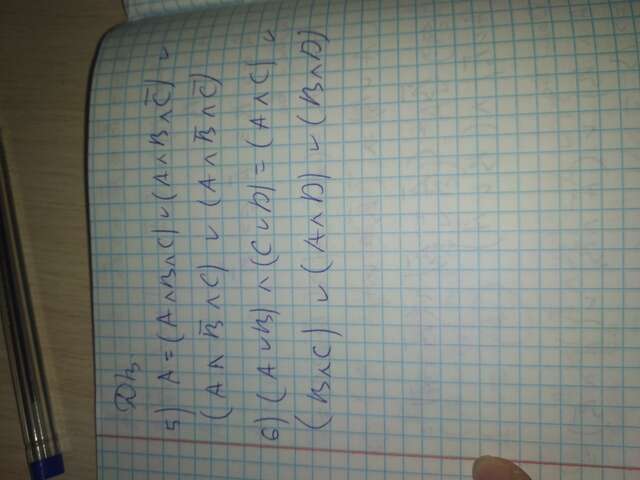 Дз
5) A = (A ∧ B ∧ C) ∨ (A ∧ B ∧ C̅) ∨
(A ∧ B̅ ∧ C) ∨ (A ∧ B̅ ∧ C̅)
6) (A ∨ B) ∧ (C ∨ D) = (A ∧ C) ∨
(B ∧ C) ∨ (A ∧ D) ∨ (B ∧ D)